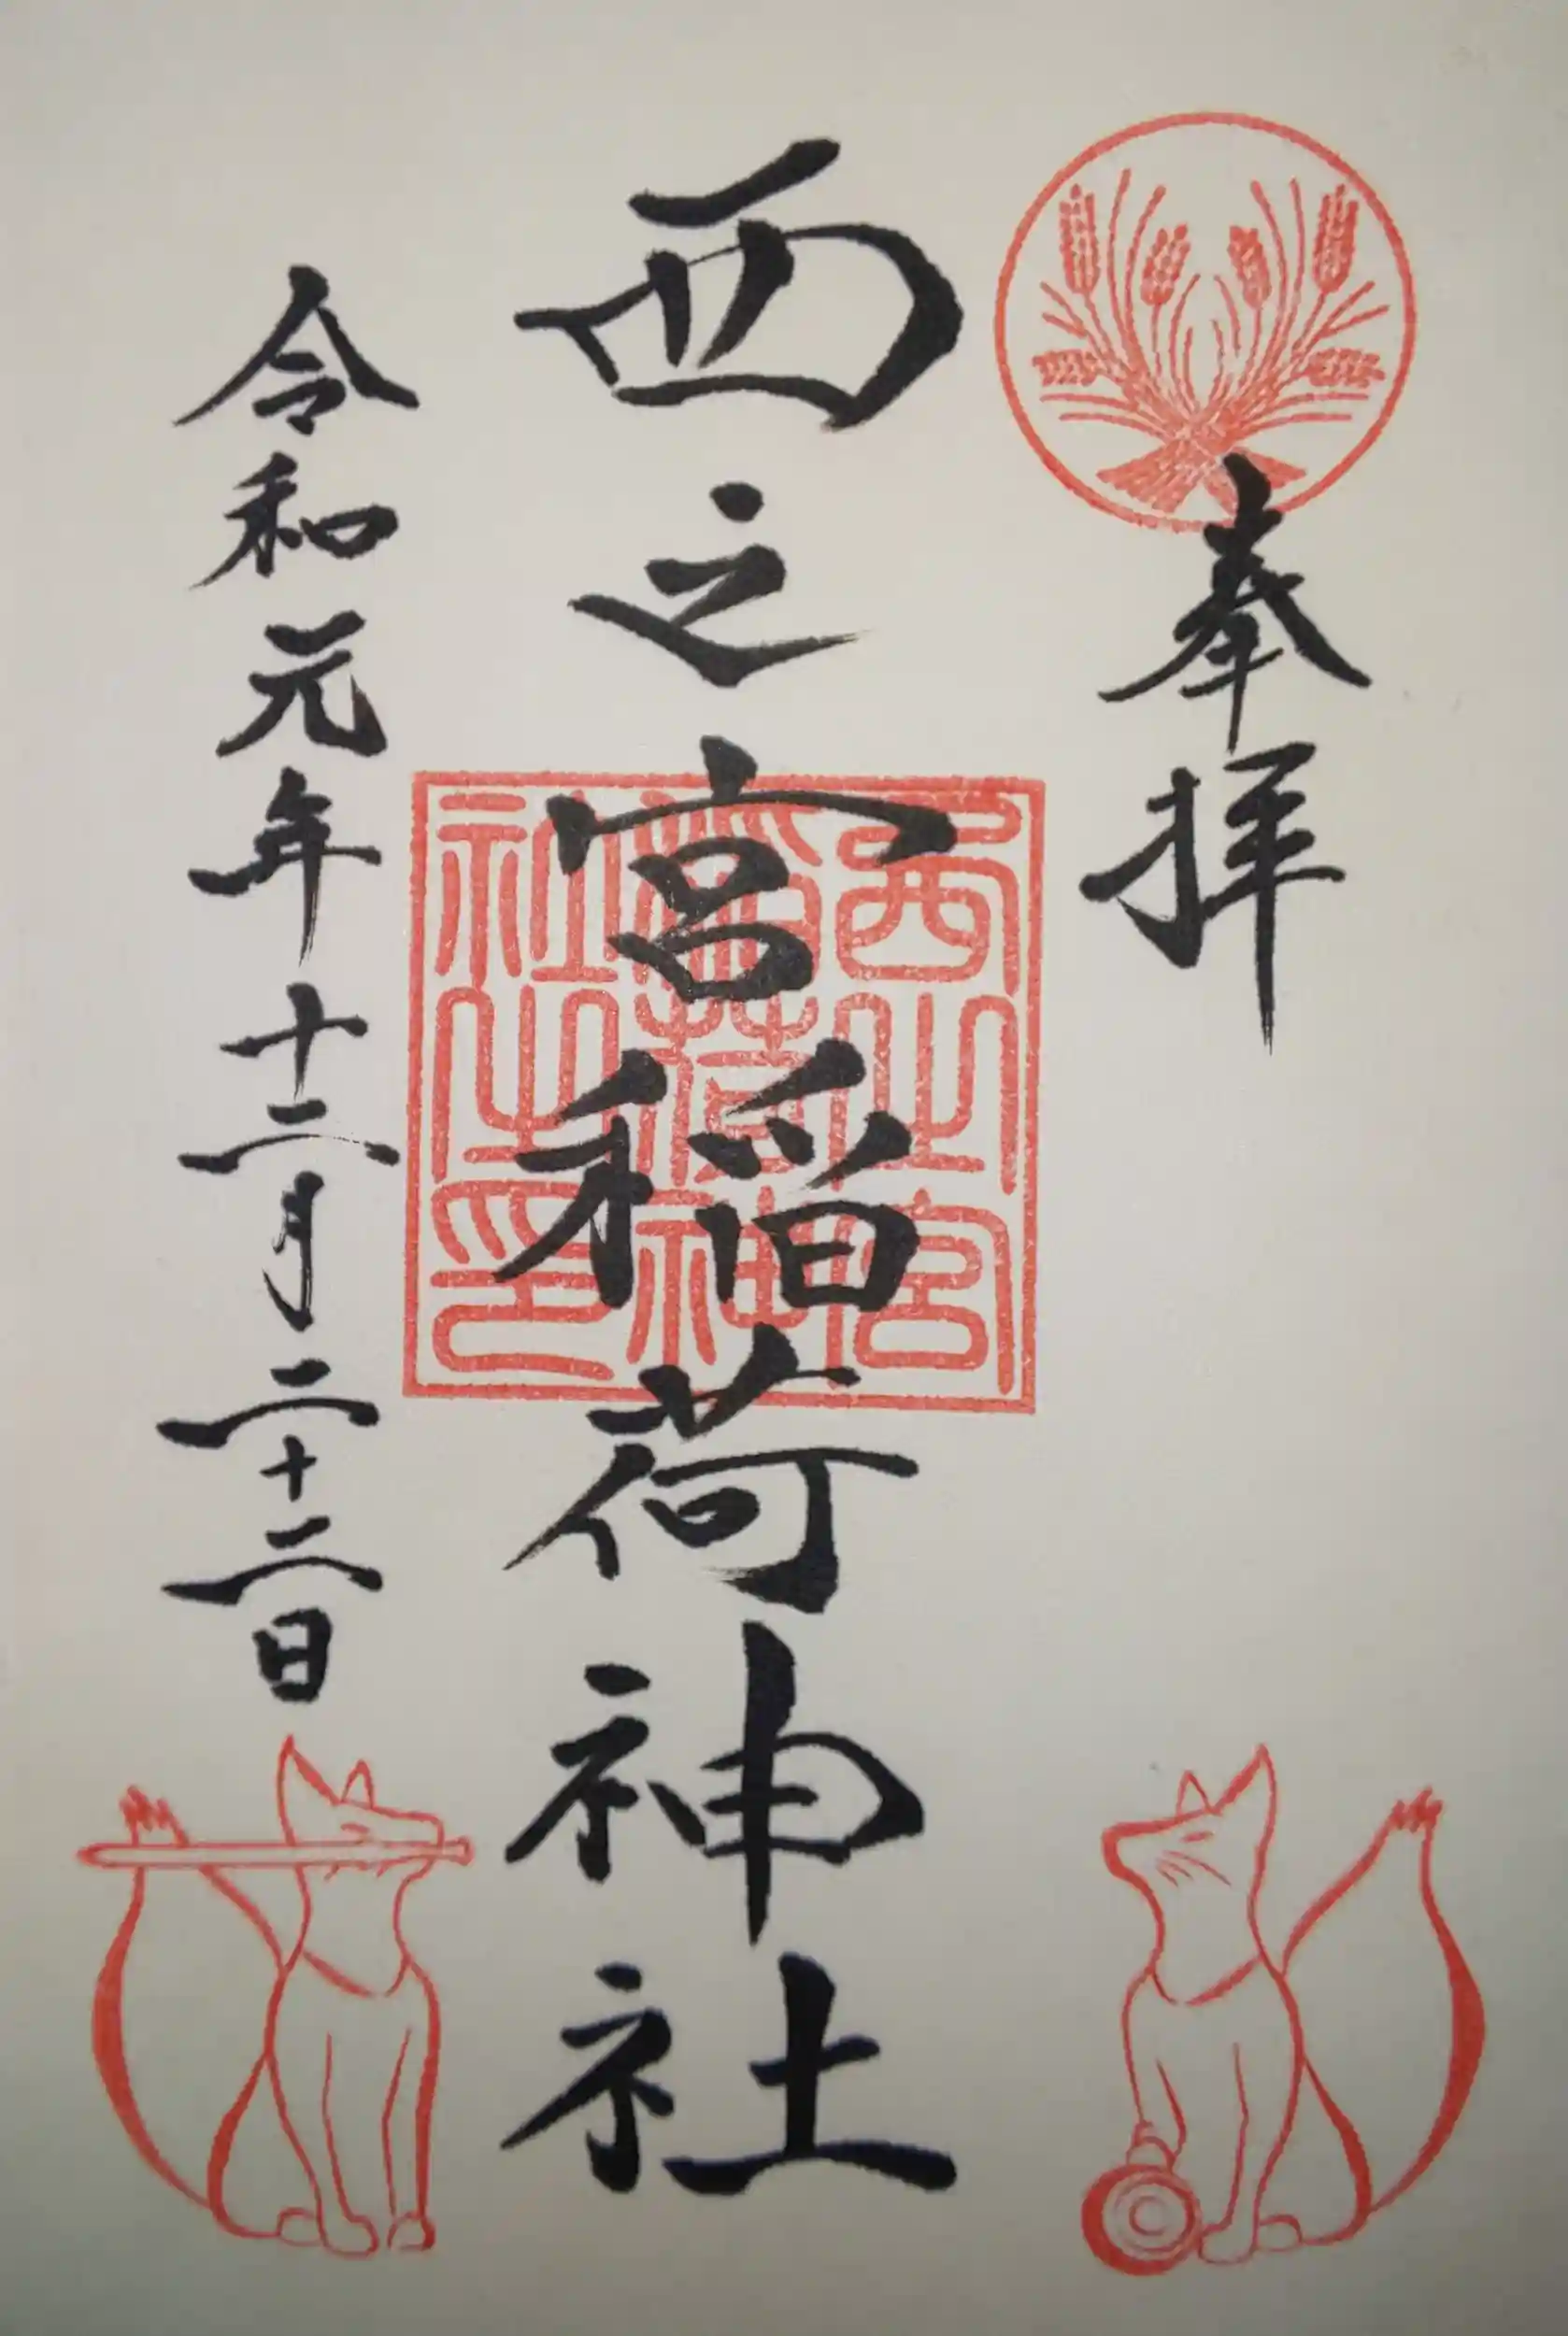 奉拝
西之宮稲荷神社
西之宮
稲荷神
社之印
令和元年十二月二十二日